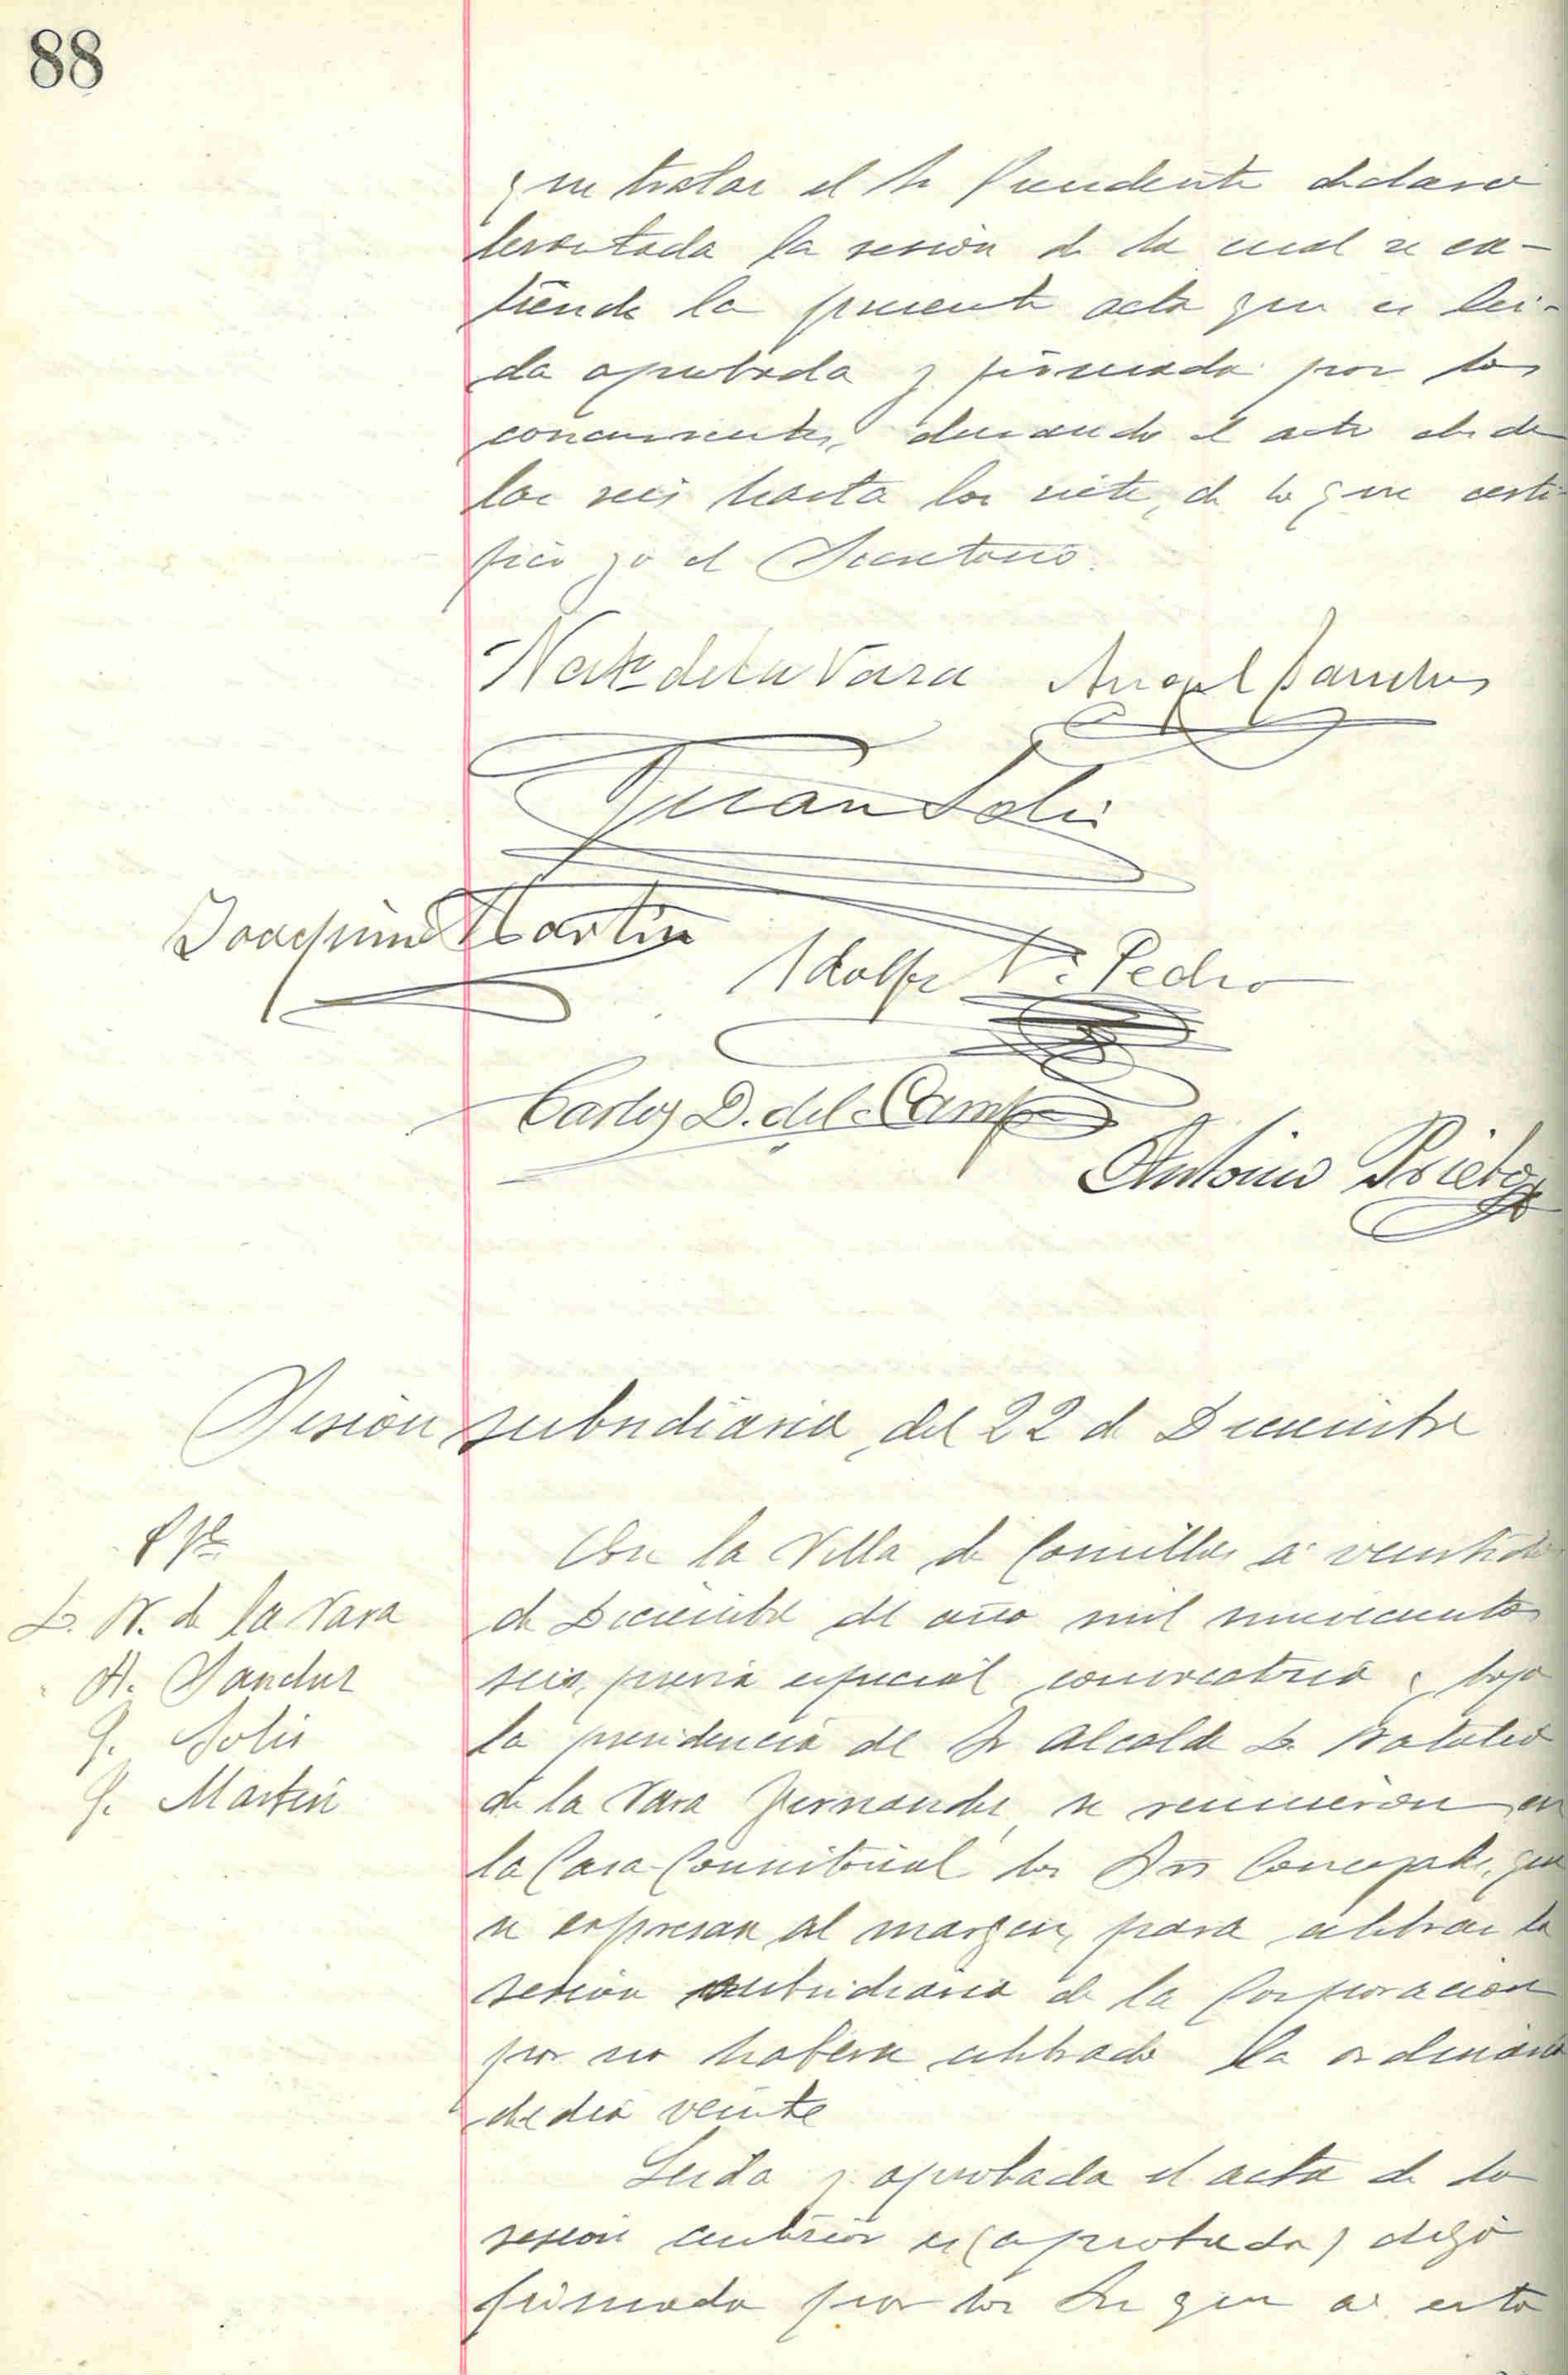 88
que tratar el Sr Presidente declaró
levantada la sesión de la cual se ex-
tiende la presente acta que es lei-
da aprobada y firmada por los
concurrentes, durando el acto desde
las seis hasta las siete, de lo que certi
fico yo el Secretario.
Nat. de la Vara Angel Sanchez
Juan Solis
Joaquin Martin
Adolfo V. Pedro
Carlos D. del Campo
Antonio Prieto
Sesión subsidiaria del 22 de Diciembre
D. N. de la Vara
A. Sanchez
J. Solis
J. Martin
En la Villa de Comillas a veintidos
de Diciembre del año mil novecientos
seis, previa especial convocatoria y bajo
la presidencia del Sr Alcalde D. Natalio
de la Vara Fernandez, se reunieron en
la Casa-Consistorial los Srs Concejales, que
se expresan al margen, para celebrar la
sesión subsidiaria de la Corporación
por no haberse celebrado la ordinaria
del dia veinte
Leida y aprobada el acta de la
sesion anterior es (aprobada) digo
firmada por los Srs que a esta